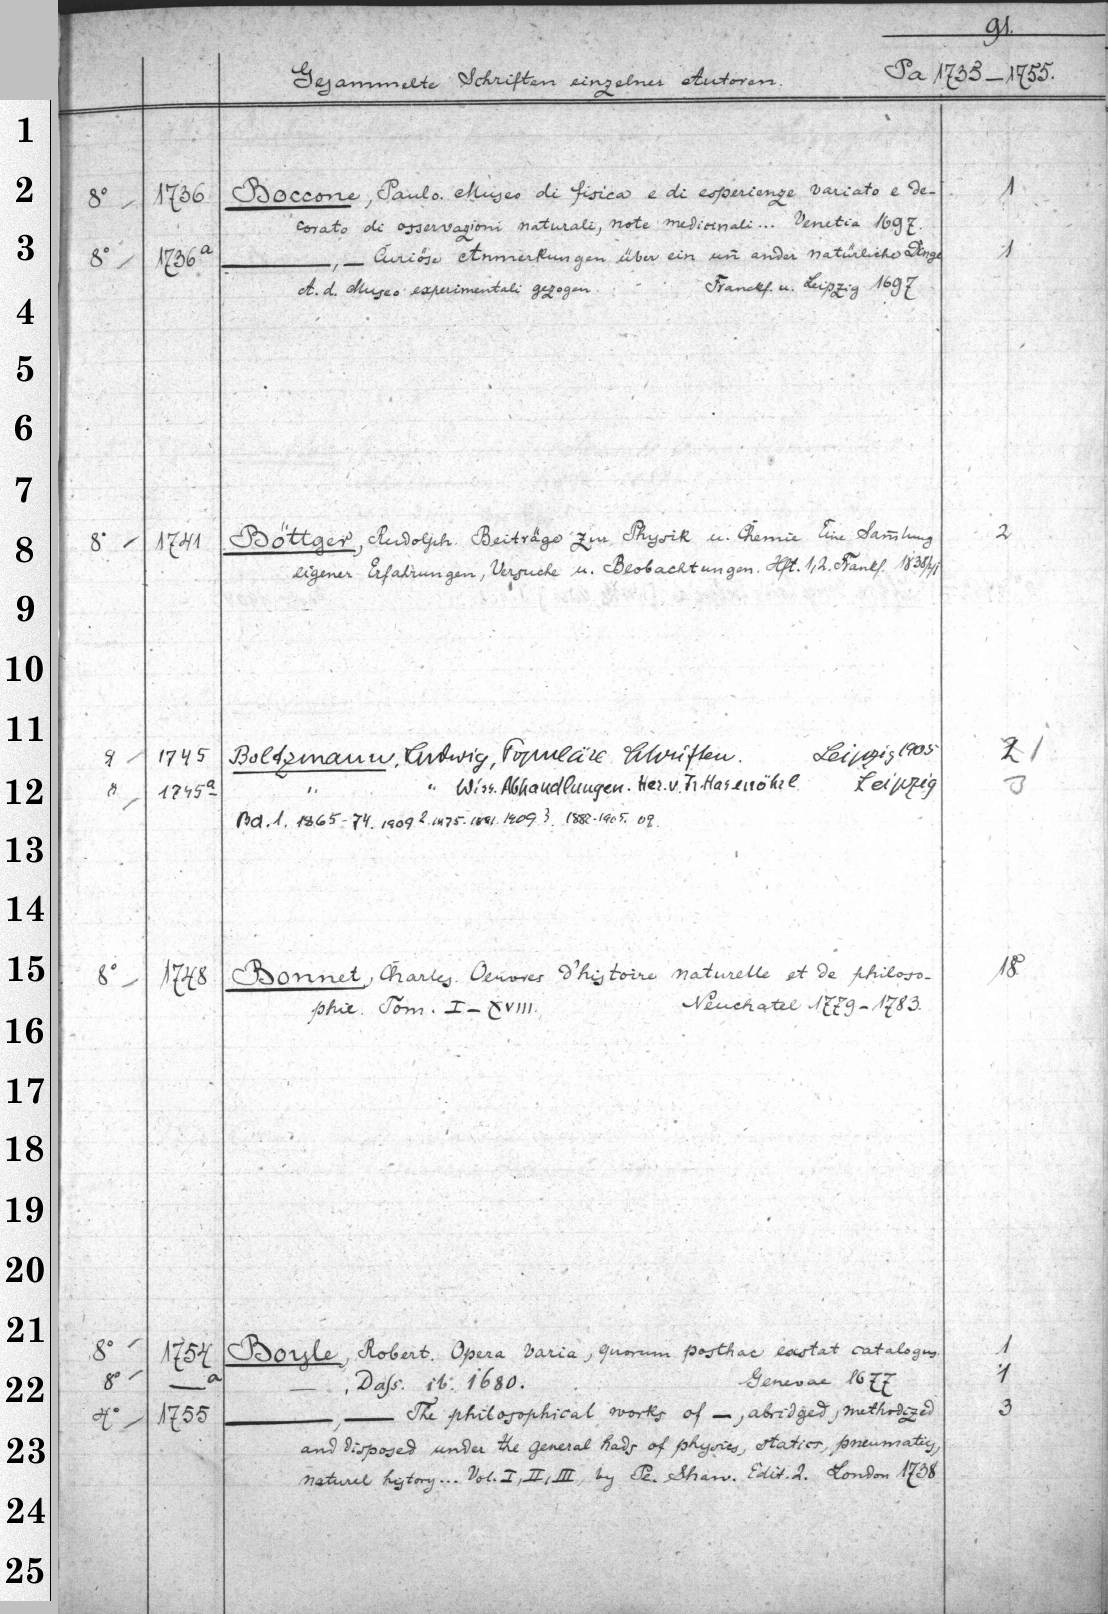 91.
Gesammelte Schriften einzelner Autoren. Pa 1733–1755.
1
2 8° 1736 Boccone, Paulo. Museo di fisica e di esperienze variato e de- 1
corato di osservazioni naturali, note medicinali... Venetia 1697.
3 8° 1736a —, — Curiöse Anmerkungen über ein un̄ ander natürliche Dinge 1
A. d. Museo experimentali gezogen. Franckf. u. Leipzig 1697
4
5
6
7
8 8° 1741 Böttger, Rudolph. Beiträge zur Physik u. Chemie Eine Sam̄lung 2
eigener Erfahrungen, Versuche u. Beobachtungen. Hft. 1,2. Frankf. 1838/41
9
10
11 1745 Boltzmann, Ludwig, Populäre Schriften. Leipzig 1905 1
12 " 1745a " " Wiss. Abhandlungen. Her. v. Fr. Hasenöhrl Leipzig 3
Bd. 1. 1865-74. 1909 2. 1875-1881. 1909 3. 1882-1905. 09.
13
14
15 8° 1748 Bonnet, Charles. Oeuvres d'histoire naturelle et de philoso- 18
phie. Tom. I–XVIII. Neuchatel 1779–1783.
16
17
18
19
20
21 8° 1754 Boyle, Robert. Opera varia, quorum posthac exstat catalogus. 1
22 8° —a —, Dass. ib. 1680. Genevae 1677 1
4° 1755 —, — The philosophical works of —, abridged, methodized 3
23 and disposed under the general hads of physics, statics, pneumatics,
naturel history... Vol. I, II, III, by Pe. Shaw. Edit. 2. London 1738
24
25